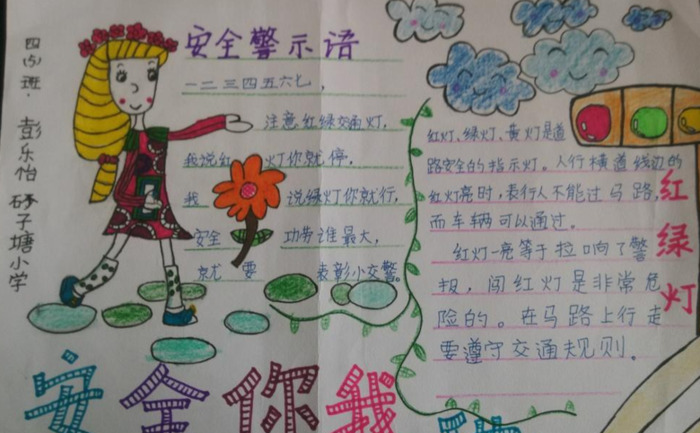 四(5)班·彭乐怡 砂子塘小学
安全警示语
一二三四五六七，
注意红绿交通灯，
我说红 灯你就停，
我 说绿灯你就行，
安全 功劳谁最大，
就 要 表彰小交警。
红灯、绿灯、黄灯是道
路安全的指示灯。人行横道线边的
红灯亮时，表行人不能过马路，
而车辆可以通过。
红灯一亮等于拉响了警
报，闯红灯是非常危
险的。在马路上行走
要遵守交通规则。
红绿灯
安全你我